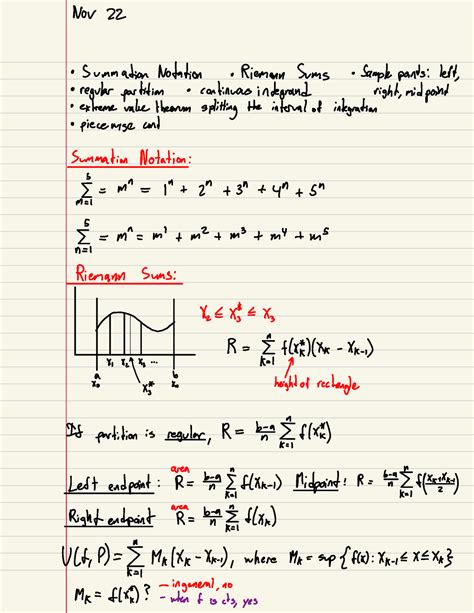 Nov 22
• Summation Notation • Riemann Sums • Sample points: left,
• regular partition • continuous integrand right, midpoint
• extreme value theorem splitting the interval of integration
• piecewise cont
Summation Notation:
5 ∑ m=1 = mⁿ = 1ⁿ + 2ⁿ + 3ⁿ + 4ⁿ + 5ⁿ
5 ∑ n=1 = mⁿ = m¹ + m² + m³ + m⁴ + m⁵
Riemann Sums:
x₂ ≤ x₃* ≤ x₃
R = n ∑ k=1 f(xₖ*)(xₖ - xₖ₋₁)
x₁ x₂ x₃ ...
a b
x₀ x₃* xₙ
height of rectangle
If partition is regular, R = b-a/n n ∑ k=1 f(xₖ*)
Left endpoint: area R = b-a/n n ∑ k=1 f(xₖ₋₁) Midpoint: R = b-a/n n ∑ k=1 f(xₖ₋₁+xₖ/2)
Right endpoint area R = b-a/n n ∑ k=1 f(xₖ)
U(f, P) = n ∑ k=1 Mₖ(xₖ - xₖ₋₁), where Mₖ = sup {f(x): xₖ₋₁ ≤ x ≤ xₖ}
Mₖ = f(xₖ*)? - in general, no
- when f is cts, yes